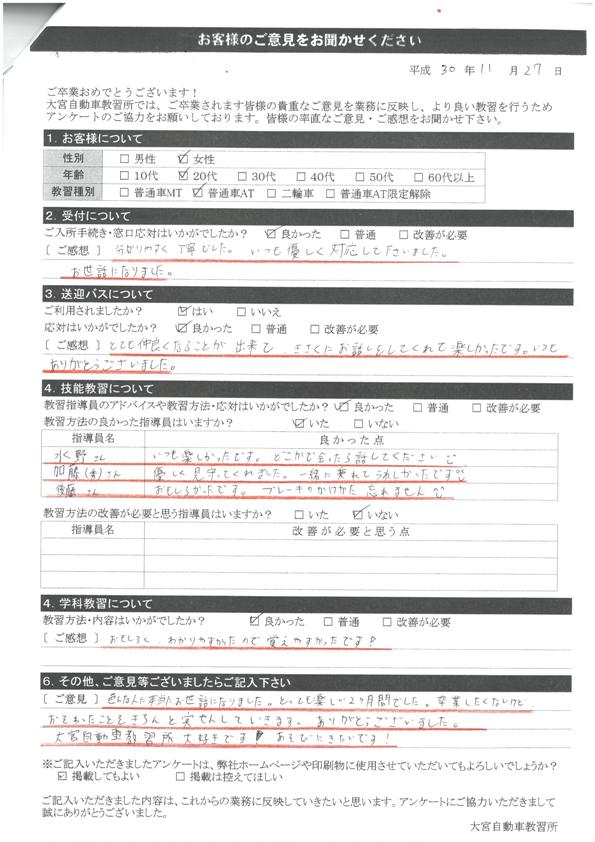 お客様のご意見をお聞かせください
平成 30 年 11 月 27 日
ご卒業おめでとうございます！
大宮自動車教習所では、ご卒業されます皆様の貴重なご意見を業務に反映し、より良い教習を行うため
アンケートのご協力をお願いしております。皆様の率直なご意見・ご感想をお聞かせ下さい。
1. お客様について
性別 □ 男性 ☑ 女性
年齢 □ 10代 ☑ 20代 □ 30代 □ 40代 □ 50代 □ 60代以上
教習種別 □ 普通車MT ☑ 普通車AT □ 二輪車 □ 普通車AT限定解除
2. 受付について
ご入所手続き・窓口応対はいかがでしたか？ ☑ 良かった □ 普通 □ 改善が必要
[ ご感想 ] 分かりやすく丁寧でした。いつも優しく対応して下さいました。
お世話になりました。
3. 送迎バスについて
ご利用されましたか？ ☑ はい □ いいえ
応対はいかがでしたか？ ☑ 良かった □ 普通 □ 改善が必要
[ ご感想 ] とても仲良くなることが出来て、きさくにお話しをしてくれて楽しかったです。いつも
ありがとうございました。
4. 技能教習について
教習指導員のアドバイスや教習方法・応対はいかがでしたか？ ☑ 良かった □ 普通 □ 改善が必要
教習方法の良かった指導員はいますか？ ☑ いた □ いない
指導員名 良かった点
水野さん いつも楽しかったです。どこかで会ったら話してください
加藤(秀)さん 優しく見守ってくれました。一緒に乗れてうれしかったです
後藤さん おもしろかったです。ブレーキのかけかた忘れません
教習方法の改善が必要と思う指導員はいますか？ □ いた ☑ いない
指導員名 改善が必要と思う点
4. 学科教習について
教習方法・内容はいかがでしたか？ ☑ 良かった □ 普通 □ 改善が必要
[ ご感想 ] おもしろく、わかりやすかったので覚えやすかったです！
6. その他、ご意見等ございましたらご記入下さい
[ ご意見 ] 色んな人に本当にお世話になりました。とっても楽しい2ヶ月間でした。卒業したくないけど、
おそわったことをきちんと実せんしていきます。ありがとうございました。
大宮自動車教習所大好きです！あそびにきたいです！
※ご記入いただきましたアンケートは、弊社ホームページや印刷物に使用させていただいてもよろしいでしょうか？
☑ 掲載してもよい □ 掲載は控えてほしい
ご記入いただきました内容は、これからの業務に反映していきたいと思います。アンケートにご協力いただきまして
誠にありがとうございました。
大宮自動車教習所